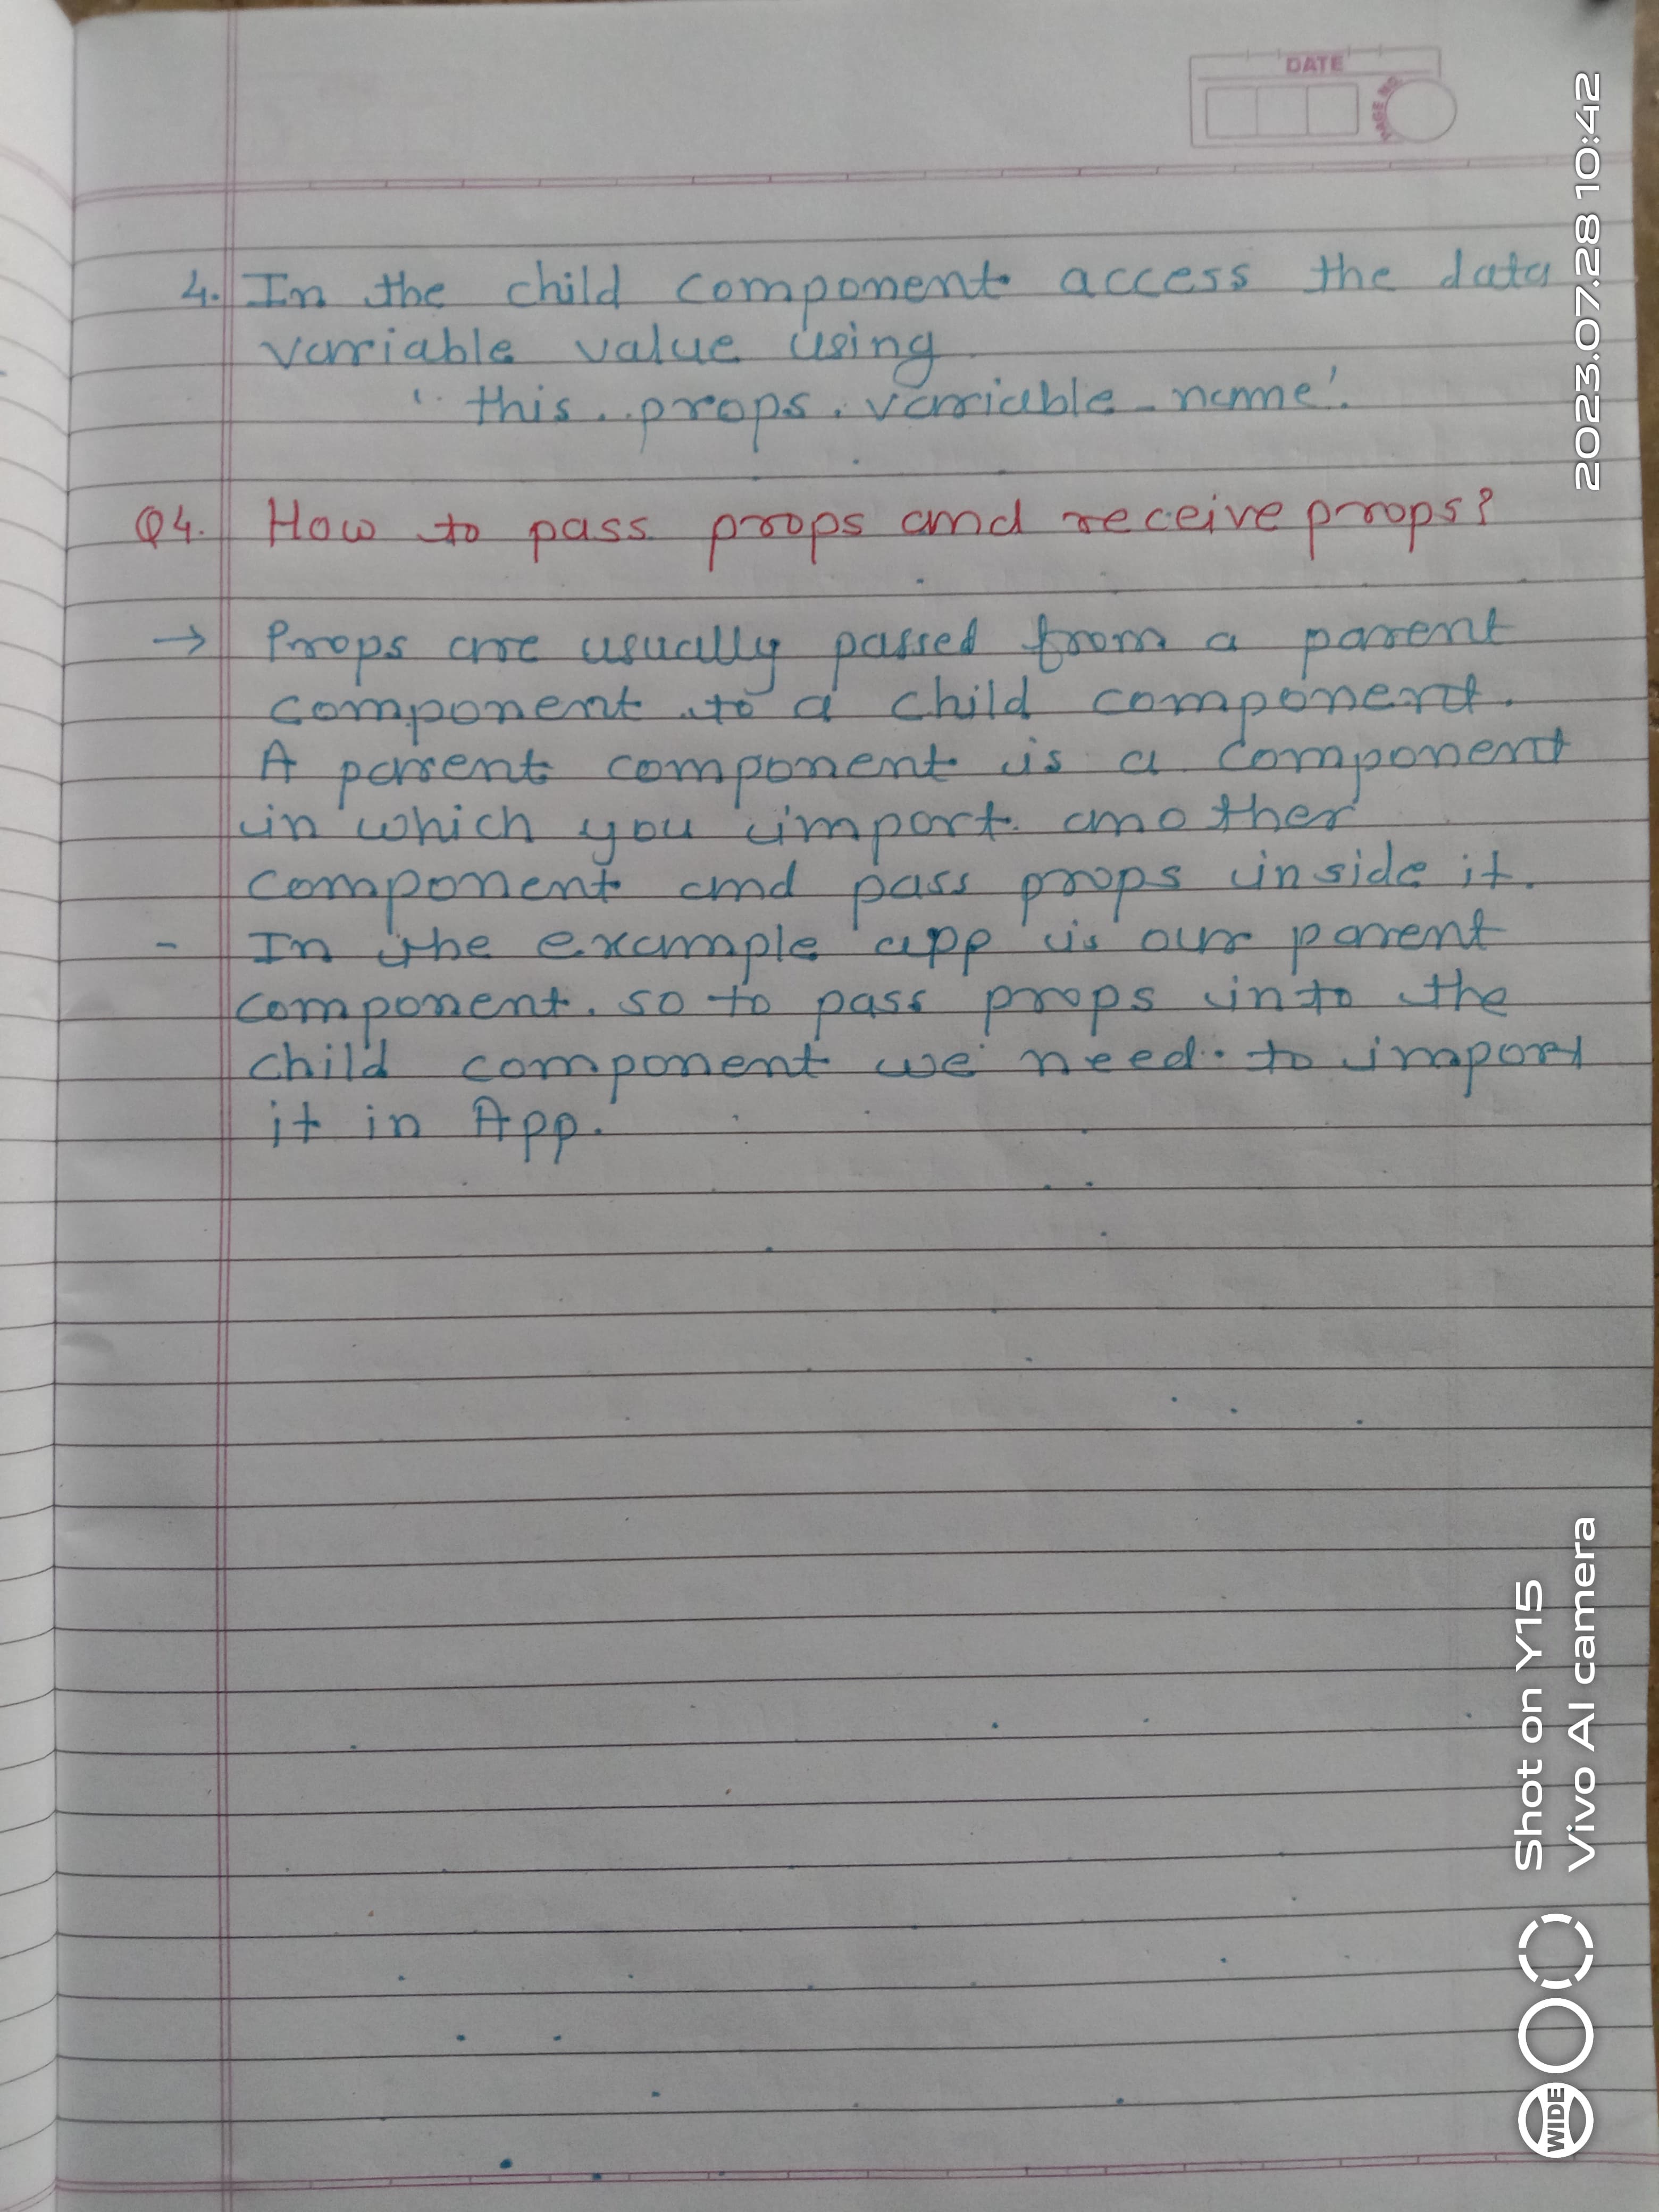 DATE
PAGE NO.
4. In the child component access the data
variable value using
'this.props.variable_name'.
Q4. How to pass props and receive props?
→ Props are usually passed from a parent
component to a child component.
A parent component is a component
in which you import another
component and pass props inside it.
- In the example app is our parent
component. so to pass props into the
child component we need to import
it in App.
2023.07.28 10:42
Shot on Y15
Vivo AI camera
WIDE